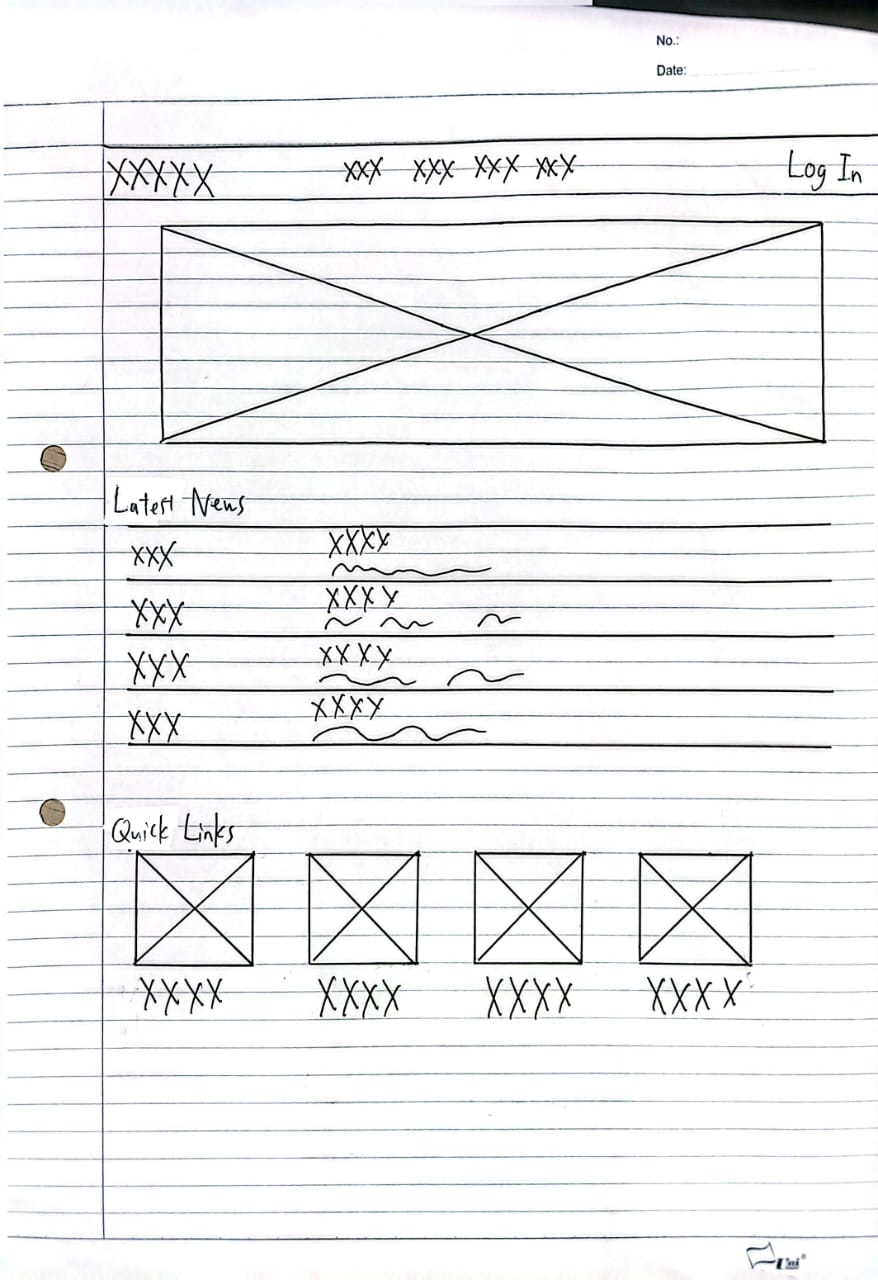 No.:
Date:
XXXXX XXX XXX XXX XXX Log In
Latest News
XXX XXXX
XXX XXXX
XXX XXXX
XXX XXXX
Quick Links
XXXX XXXX XXXX XXXX
Uni